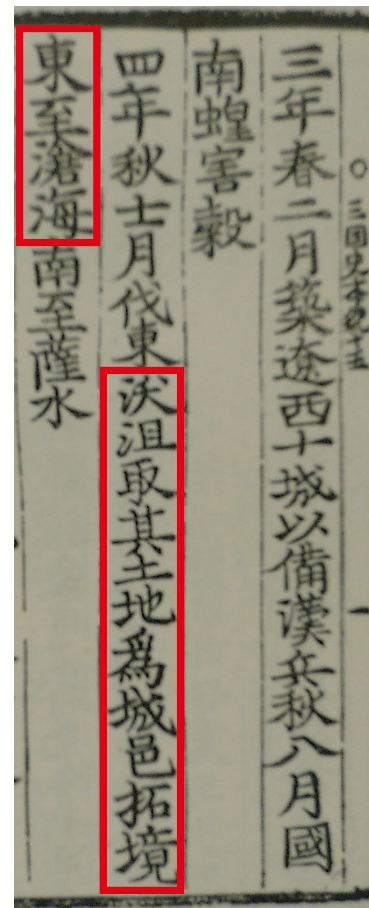 ○三国史本紀十五 一
三年春二月築遼西十城以備漢兵秋八月國
南蝗害穀
四年秋七月伐東沃沮取其土地爲城邑拓境
東至滄海南至薩水